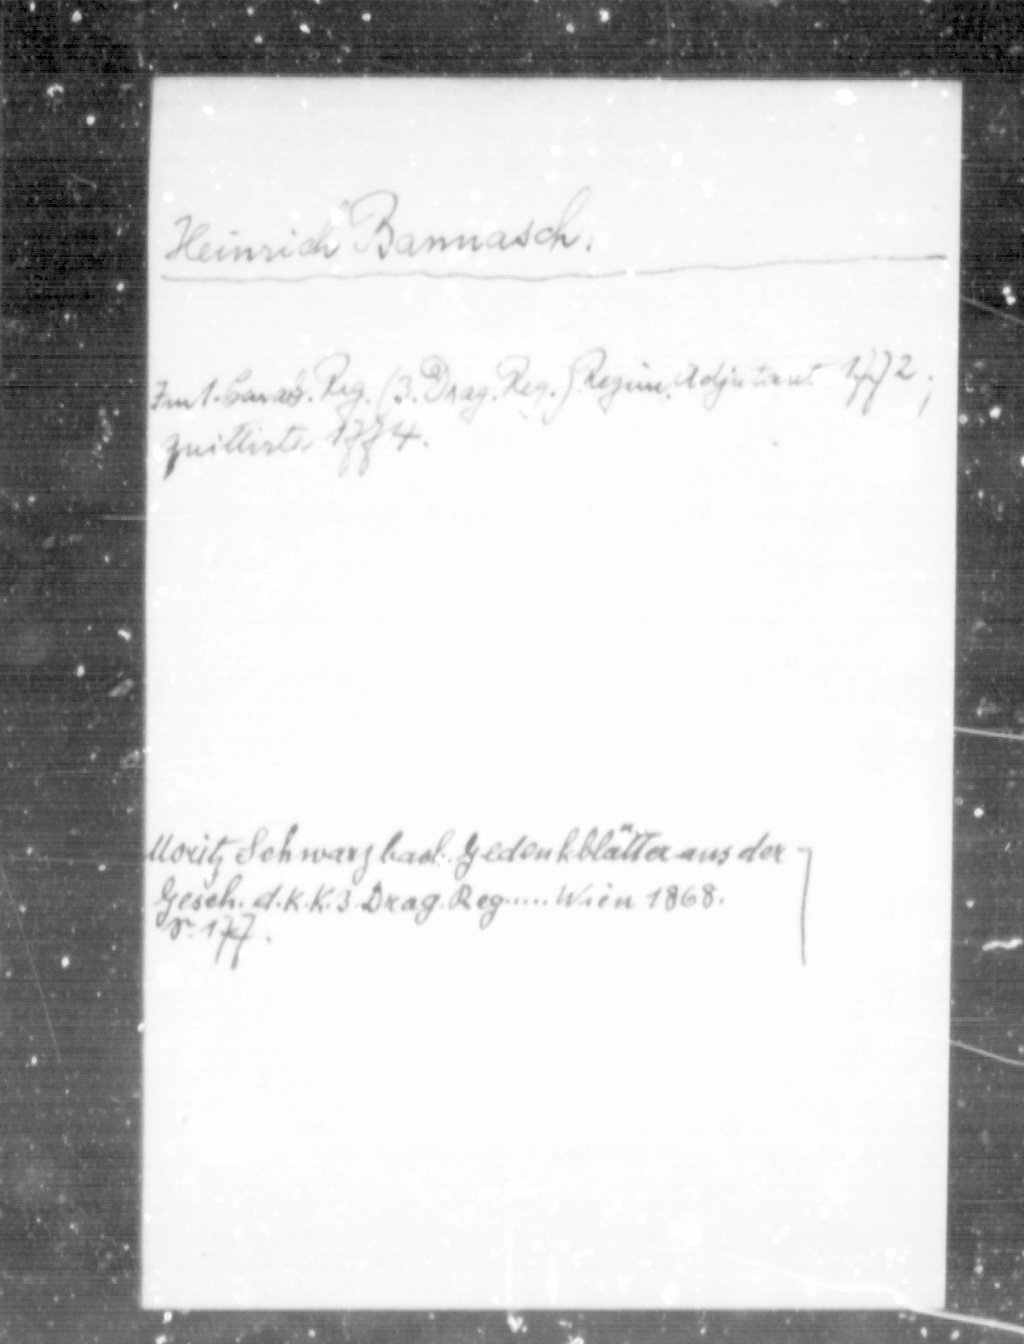 Heinrich Bannasch.
Im 1. Carab. Reg. (3. Drag. Reg.) Regim. Adjutant 1772;
quittirte 1774.
Moritz Schwarzbach. Gedenkblätter aus der
Gesch. d. k. k. 3. Drag. Reg..... Wien 1868.
S. 177.